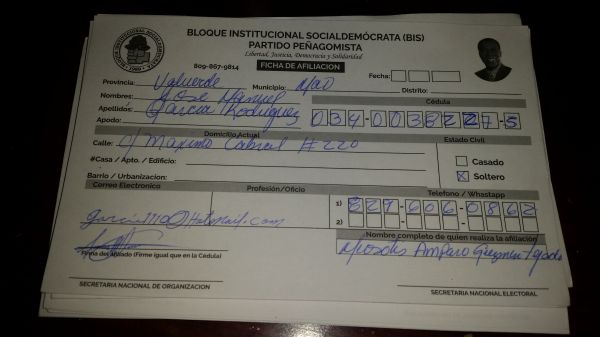 BLOQUE INSTITUCIONAL SOCIALDEMÓCRATA (BIS)
PARTIDO PEÑAGOMISTA
Libertad, Justicia, Democracia y Solidaridad
809-867-9814
FICHA DE AFILIACION
Fecha:
Provincia: Valverde Municipio: Mao Distrito:
Nombres: Jose Manuel
Cédula
Apellidos: Garcia Rodriguez
034-0038227-5
Apodo:
Domicilio Actual
Estado Civil
Calle: c/ Maximo Cabral #220
Casado
#Casa / Apto. / Edificio:
Soltero
Barrio / Urbanizacion:
Correo Electronico Profesión/Oficio Telefono / Whastapp
1) 829-606-0862
garcia1110@Hotmail.com
2)
Nombre completo de quien realiza la afiliación
Miosotis Amparo Guzman
Firma del afiliado (Firme igual que en la Cédula)
SECRETARIA NACIONAL DE ORGANIZACION
SECRETARIA NACIONAL ELECTORAL